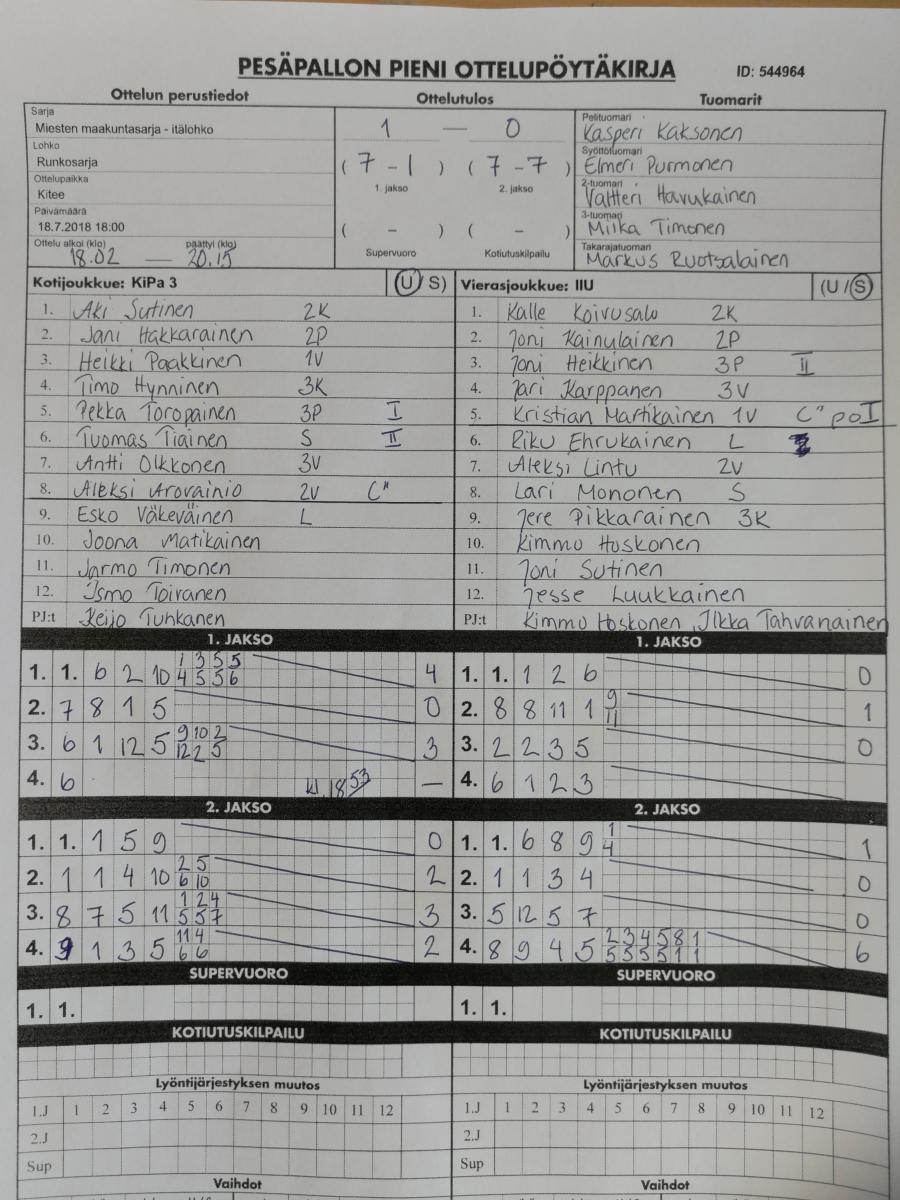 PESÄPALLON PIENI OTTELUPÖYTÄKIRJA
ID: 544964
Ottelun perustiedot
Sarja
Miesten maakuntasarja - itälohko
Lohko
Runkosarja
Ottelupaikka
Kitee
Päivämäärä
18.7.2018 18:00
Ottelu alkoi (klo) päättyi (klo)
18.02 — 20.15
Ottelutulos
1 — 0
( 7 - 1 ) ( 7 - 7 )
1. jakso 2. jakso
( - ) ( - )
Supervuoro Kotiutuskilpailu
Tuomarit
Pelituomari
Kasperi Kaksonen
Syöttötuomari
Elmeri Purmonen
2-tuomari
Valtteri Havukainen
3-tuomari
Miika Timonen
Takarajatuomari
Markus Ruotsalainen
Kotijoukkue: KiPa 3 (U/S)
1. Aki Sutinen 2K
2. Jani Hakkarainen 2P
3. Heikki Paakkinen 1V
4. Timo Hynninen 3K
5. Pekka Toropainen 3P I
6. Tuomas Tiainen S II
7. Antti Olkkonen 3V
8. Aleksi Arovainio 2V C"
9. Esko Väkeväinen L
10. Joona Matikainen
11. Jarmo Timonen
12. Ismo Toivanen
PJ:t Keijo Tuhkanen
Vierasjoukkue: IIU (U/S)
1. Kalle Koivusalo 2K
2. Joni Kainulainen 2P
3. Joni Heikkinen 3P II
4. Jari Karppanen 3V
5. Kristian Martikainen 1V C" po I
6. Riku Ehrukainen L
7. Aleksi Lintu 2V
8. Lari Mononen S
9. Jere Pikkarainen 3K
10. Kimmo Hoskonen
11. Joni Sutinen
12. Jesse Luukkainen
PJ:t Kimmo Hoskonen, Ilkka Tahvanainen
1. JAKSO
1. 1. 6 2 10 1 3 5 5 4
4 5 5 6
2. 7 8 1 5 0
3. 6 1 12 5 9 10 2 3
12 2 5
4. 6 kl 18 53 —
2. JAKSO
1. 1. 1 5 9 0
2. 1 1 4 10 2 5 2
6 10
3. 8 7 5 11 1 2 4 3
5 5 7
4. 9 1 3 5 11 4 2
6 6
SUPERVUORO
1. 1.
KOTIUTUSKILPAILU
Lyöntijärjestyksen muutos
1.J 1 2 3 4 5 6 7 8 9 10 11 12
2.J
Sup
Vaihdot
1. JAKSO
1. 1. 1 2 6 0
2. 8 8 11 1 9 1
11
3. 2 2 3 5 0
4. 6 1 2 3
2. JAKSO
1. 1. 6 8 9 1 1
4
2. 1 1 3 4 0
3. 5 12 5 7 0
4. 8 9 4 5 2 3 4 5 8 1 6
5 5 5 5 1 1
SUPERVUORO
1. 1.
KOTIUTUSKILPAILU
Lyöntijärjestyksen muutos
1.J 1 2 3 4 5 6 7 8 9 10 11 12
2.J
Sup
Vaihdot